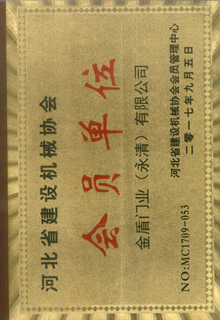 河北省建设机械协会
会员单位
金盾门业（永清）有限公司
河北省建设机械协会会员管理中心
二零一七年九月五日
NO:MC1709-053